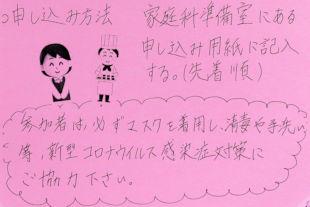 ○申し込み方法 家庭科準備室にある
申し込み用紙に記入
する。(先着順)
参加者は、必ずマスクを着用し、消毒や手洗い
等、新型コロナウイルス感染症対策に
ご協力下さい。